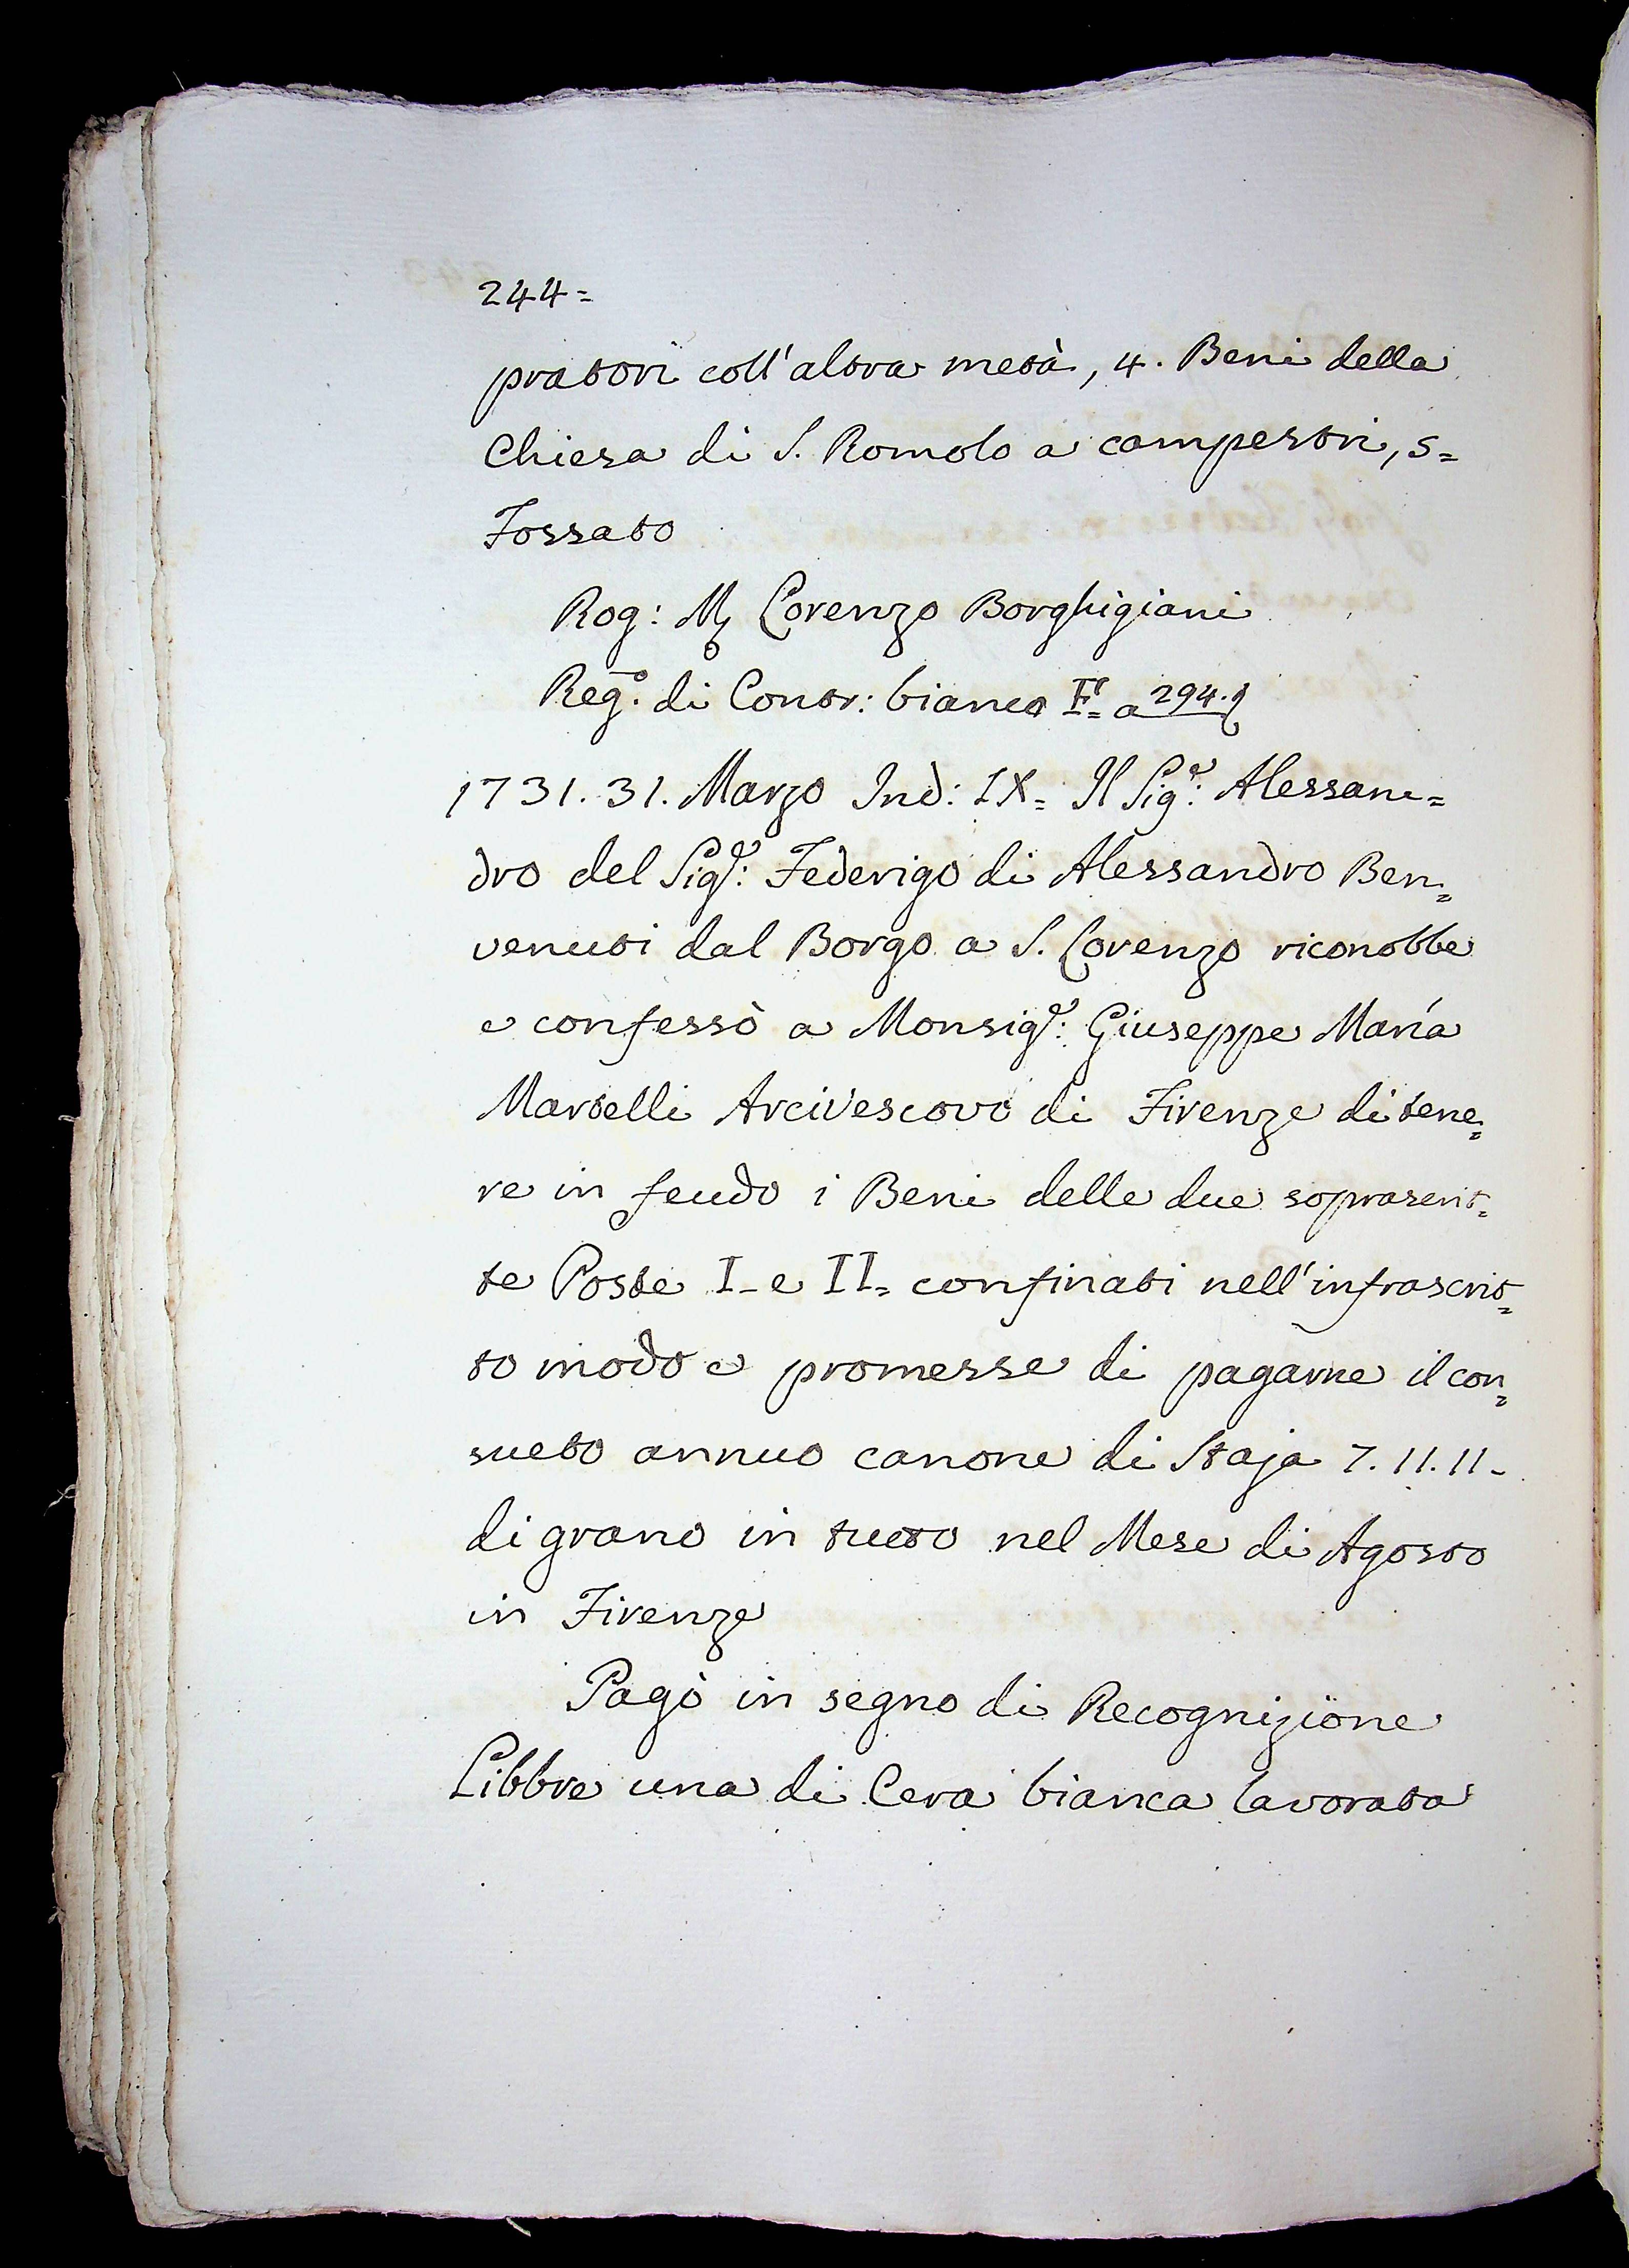 244=
pratori coll'altra metà, 4. Beni della
Chiesa di S. Romolo a campestri, 5=
Fossato
Rog: M. Lorenzo Borghigiani
Reg.o di Contr: bianco F= a 294.
1731. 31. Marzo Ind: IX= Il Sig.e: Alessan=
dro del Sig.e: Federigo di Alessandro Ben=
venuti dal Borgo a S. Lorenzo riconobbe
e confessò a Monsig.e: Giuseppe Maria
Martelli Arcivescovo di Firenze di tene=
re in feudo i Beni delle due soprascrit=
te Poste I- e II= confinati nell'infrascrit=
to modo e promesse di pagarne il con=
sueto annuo canone di Staja 7.11.11-
di grano in tutto nel Mese di Agosto
in Firenze
Pagò in segno di Recognizione
Libbre una di Cera bianca lavorata